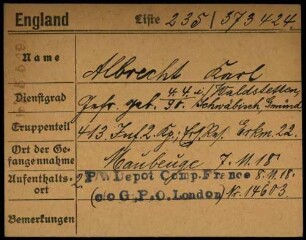 England Liste 235/373424.
Name Albrecht Karl
Dienstgrad Gefr. geb. 4.4. Waldstetten,
Schwäbisch Gmünd
Truppenteil 413. Inf. 2. Kp. Erk.m. 22.
Ort der Gefangennahme Maubeuge 7.11.18.
Aufenthaltsort 2, P/W Depot Comp. France 8.11.18.
(c/o G.P.O. London) Nr. 14603.
Bemerkungen